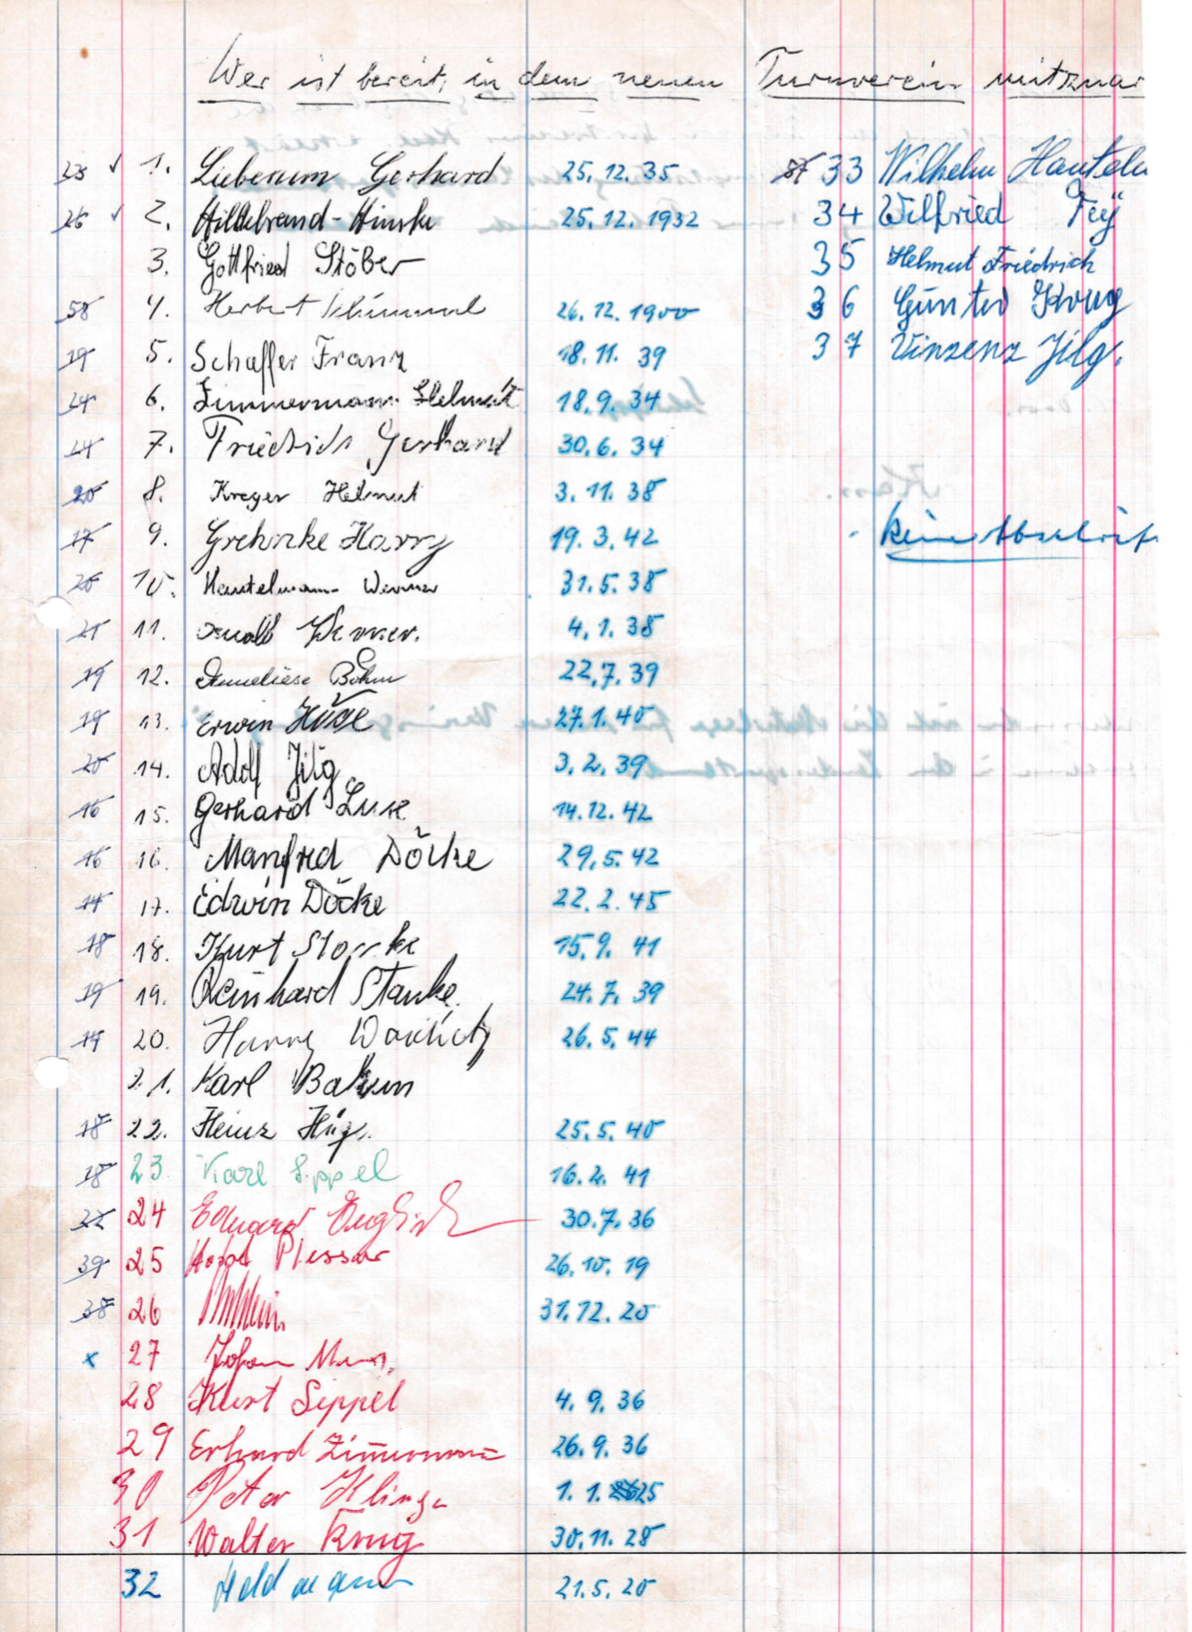 Wer ist bereit, in dem neuen Turnverein mitzuar
23 ✓ 1. Lieberum Gerhard 25.12.35
26 ✓ 2. Hildebrand - 25.12.1932
3. Gottfried Stöber
58 4. Herbert 26.12.1900
19 5. Schaffer Franz 18.11.39
24 6. Zimmermann Helmut 18.9.34
24 7. Friedrich Gerhard 30.6.34
20 8. Kreger Helmut 3.11.38
17 9. Harry 19.3.42
20 10. Hautelmann Werner 31.5.38
21 11. Werner. 4.1.38
19 12. Anneliese Böhm 22.7.39
19 13. Erwin 27.1.40
20 14. Adolf Jilg 3.2.39
16 15. Gerhard Luse 14.12.42
16 16. Manfred Döcke 29.5.42
14 17. Edwin Döcke 22.2.45
18 18. Kurt 15.9.41
19 19. Reinhard Stanke. 24.7.39
14 20. Harry 26.5.44
21. Karl
18 22. Heinz 25.5.40
18 23. Karl Sippel 16.2.41
22 24 Eduard Englisch 30.7.36
39 25 Plessar 26.10.19
38 26 31.12.20
x 27 Johann
28 Kurt Sippel 4.9.36
29 Erhard Zimmermann 26.9.36
30 Peter Klinge 1.1.25
31 Walter Krug 30.11.28
32 21.5.20
33 Wilhelm Hautelm
34 Wilfried Fey
35 Helmut Friedrich
36 Günter Krug
37 Vinzenz Jilg.
keine Abschrift